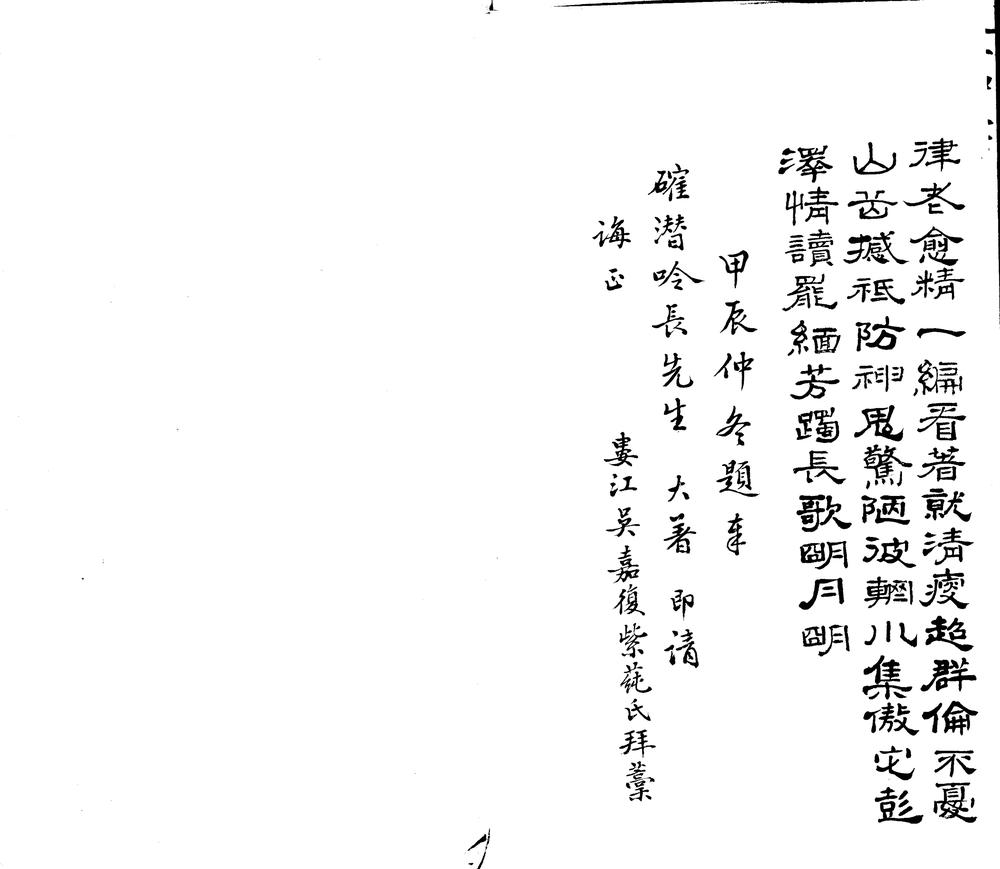 律老愈精一編看著就清瘦超群倫不憂
山岳撼祗防神鬼驚陋彼輞川集傲它彭
澤情讀罷緬芳躅長歌朙月朙
甲辰仲冬題奉
確潜吟長先生 大著 即請
誨正 婁江吳嘉復紫蒓氏拜藁